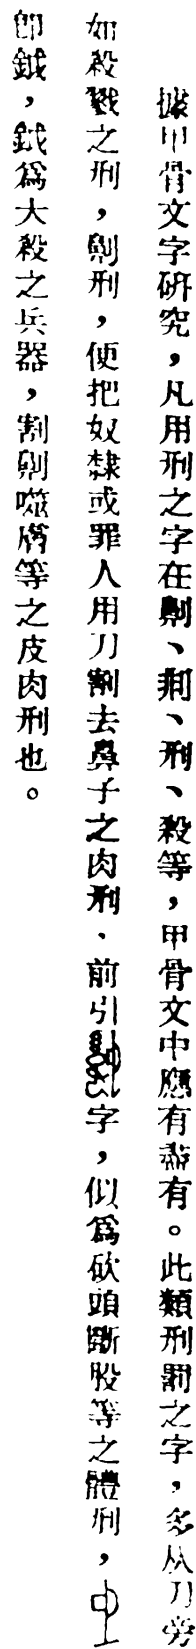 據甲骨文字研究，凡用刑之字在劓、刵、刑、殺等，甲骨文中應有盡有。此類刑罰之字，多从刀旁
如殺戮之刑，劓刑，便把奴隸或罪人用刀割去鼻子之肉刑．前引字，似爲砍頭斷股等之體刑，
即鉞，鉞爲大殺之兵器，割劓噬膚等之皮肉刑也。